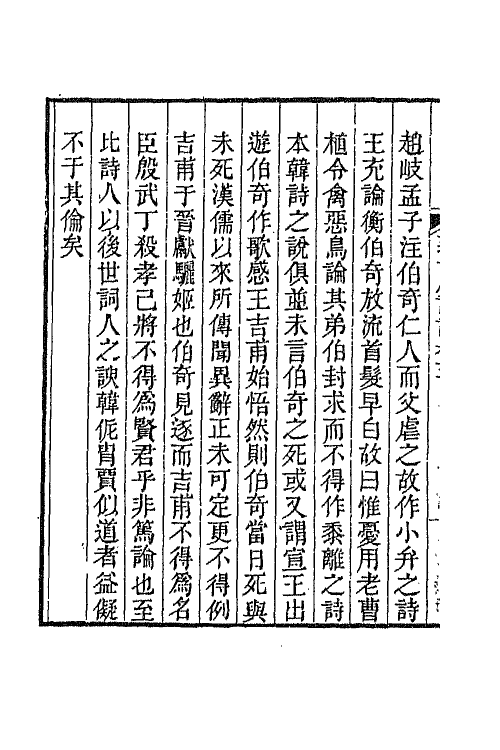 趙岐孟子注伯奇仁人而父虐之故作小弁之詩
王充論衡伯奇放流首髮早白故曰惟憂用老曹
植令禽惡鳥論其弟伯封求而不得作黍離之詩
本韓詩之說俱並未言伯奇之死或又謂宣王出
遊伯奇作歌感王吉甫始悟然則伯奇當日死與
未死漢儒以來所傳聞異辭正未可定更不得例
吉甫于晉獻驪姬也伯奇見逐而吉甫不得為名
臣殷武丁殺孝己將不得為賢君乎非篤論也至
比詩人以後世詞人之諛韓侂胄賈似道者益儗
不于其倫矣